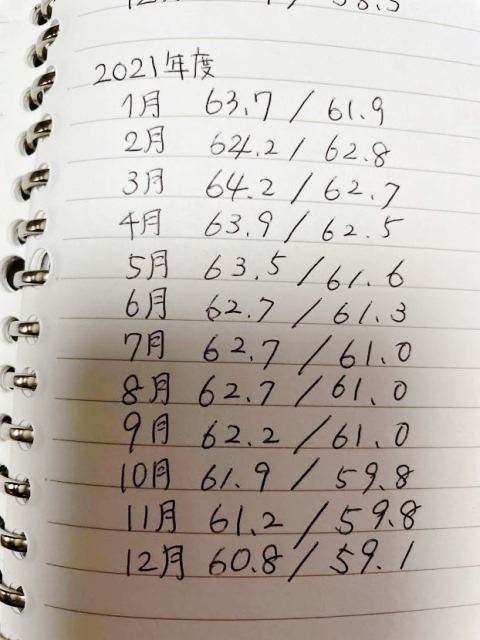 12月 / 58.5
2021年度
1月 63.7 / 61.9
2月 64.2 / 62.8
3月 64.2 / 62.7
4月 63.9 / 62.5
5月 63.5 / 61.6
6月 62.7 / 61.3
7月 62.7 / 61.0
8月 62.7 / 61.0
9月 62.2 / 61.0
10月 61.9 / 59.8
11月 61.2 / 59.8
12月 60.8 / 59.1